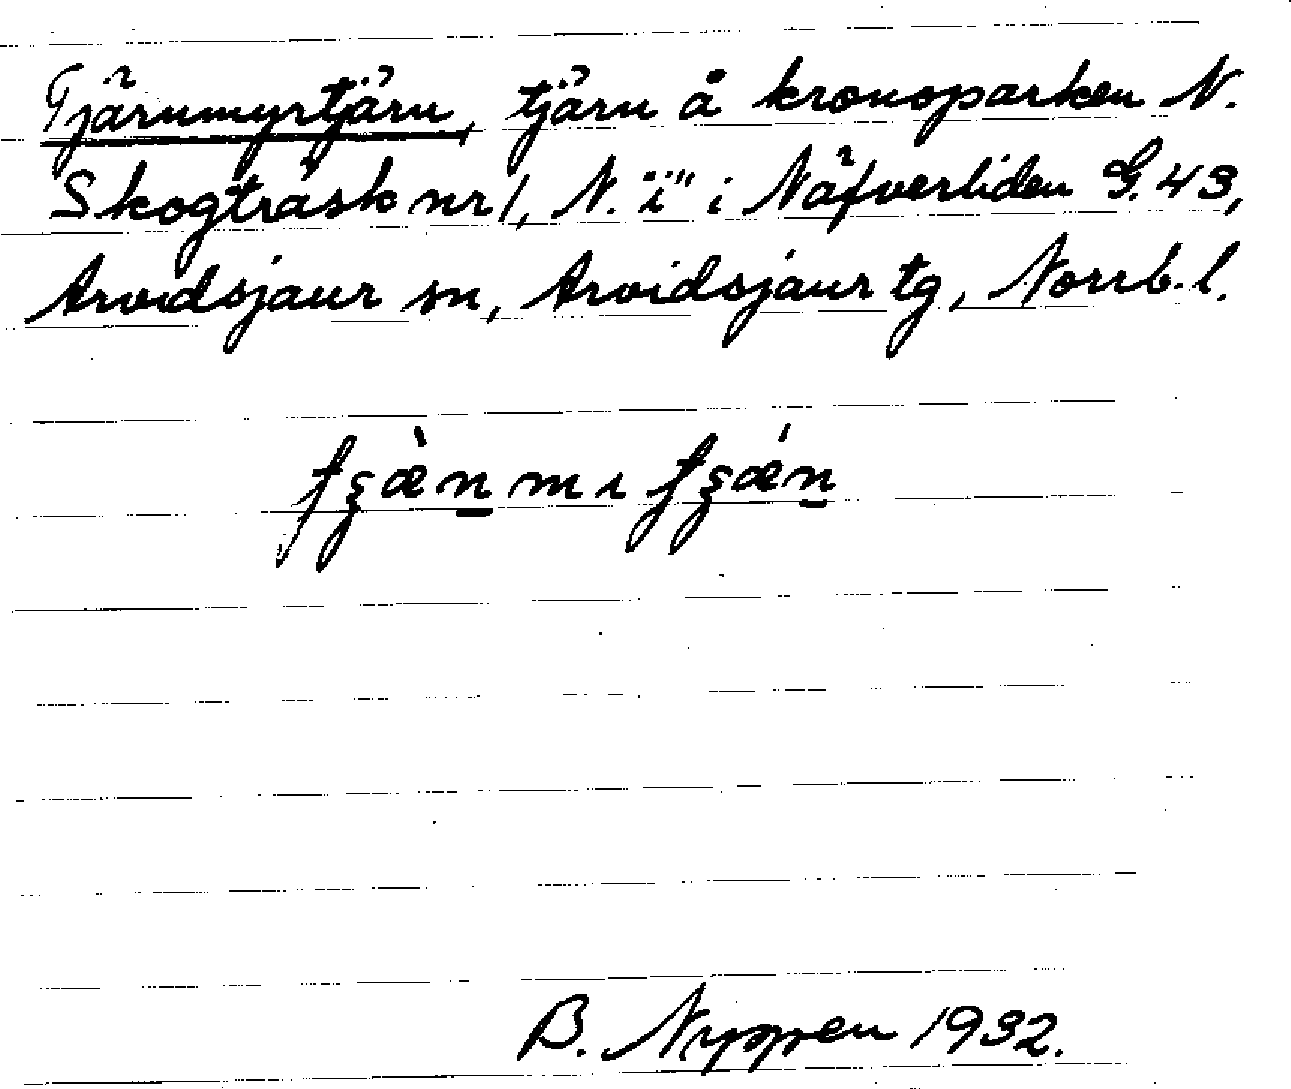 Tjärnmyrtjärn, tjärn å kronoparken N.
Skogträsk nr 1, N. "i" i Näfverliden G. 43,
Arvidsjaur sn, Arvidsjaur tg, Norrb. l.
B. Nyppen 1932.